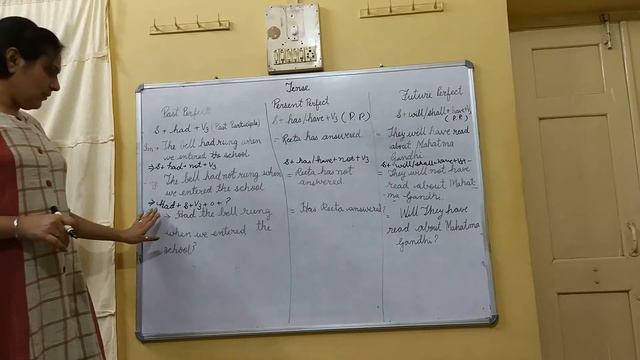 Tense
Past Perfect
S + had + V3 (Past Participle)
The bell had rung when
we entered the school
⇒ S + had + not + V3
The bell had not rung when
we entered the school
⇒ Had + S + V3 + O + ?
⇒ Had the bell rung
when we entered the
school?
Persent Perfect
S + has/have + V3 (P.P)
= Reeta has answered
S + has/have + not + V3
= Reeta has not
answered.
= Has Reeta answered?
Future Perfect
S + will/shall + have + V3
(P.P)
= They will have read
about Mahatma
Gandhi.
= They will not have
read about Mahat-
ma Gandhi.
= Will They have
read about Mahatma
Gandhi?